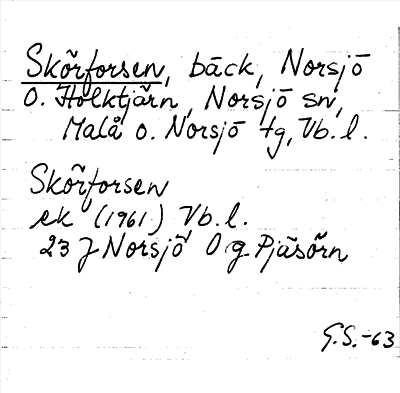 Skörforsen, bäck, Norsjö
O. Holktjärn, Norsjö sn,
Malå o. Norsjö tg, Vb. l.
Skörforsen
ek (1961) Vb. l.
23 J Norsjö O g Pjäsörn
G.S.-63